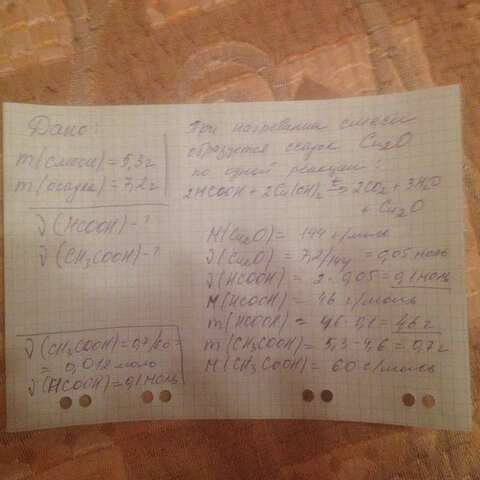 Дано:
m(смеси) = 5,3 г
m(осадка) = 7,2 г
ν(HCOOH) - ?
ν(CH₃COOH) - ?
ν(CH₃COOH) = 0,7/60 =
= 0,012 моль
ν(HCOOH) = 0,1 моль
При нагревании смеси
образуется осадок Cu₂O
по одной реакции:
2HCOOH + 2Cu(OH)₂ → 2CO₂ + 3H₂O
+ Cu₂O
M(Cu₂O) = 144 г/моль
ν(Cu₂O) = 7,2/144 = 0,05 моль
ν(HCOOH) = 2·0,05 = 0,1 моль
M(HCOOH) = 46 г/моль
m(HCOOH) = 46·0,1 = 4,6 г
m(CH₃COOH) = 5,3 - 4,6 = 0,7 г
M(CH₃COOH) = 60 г/моль